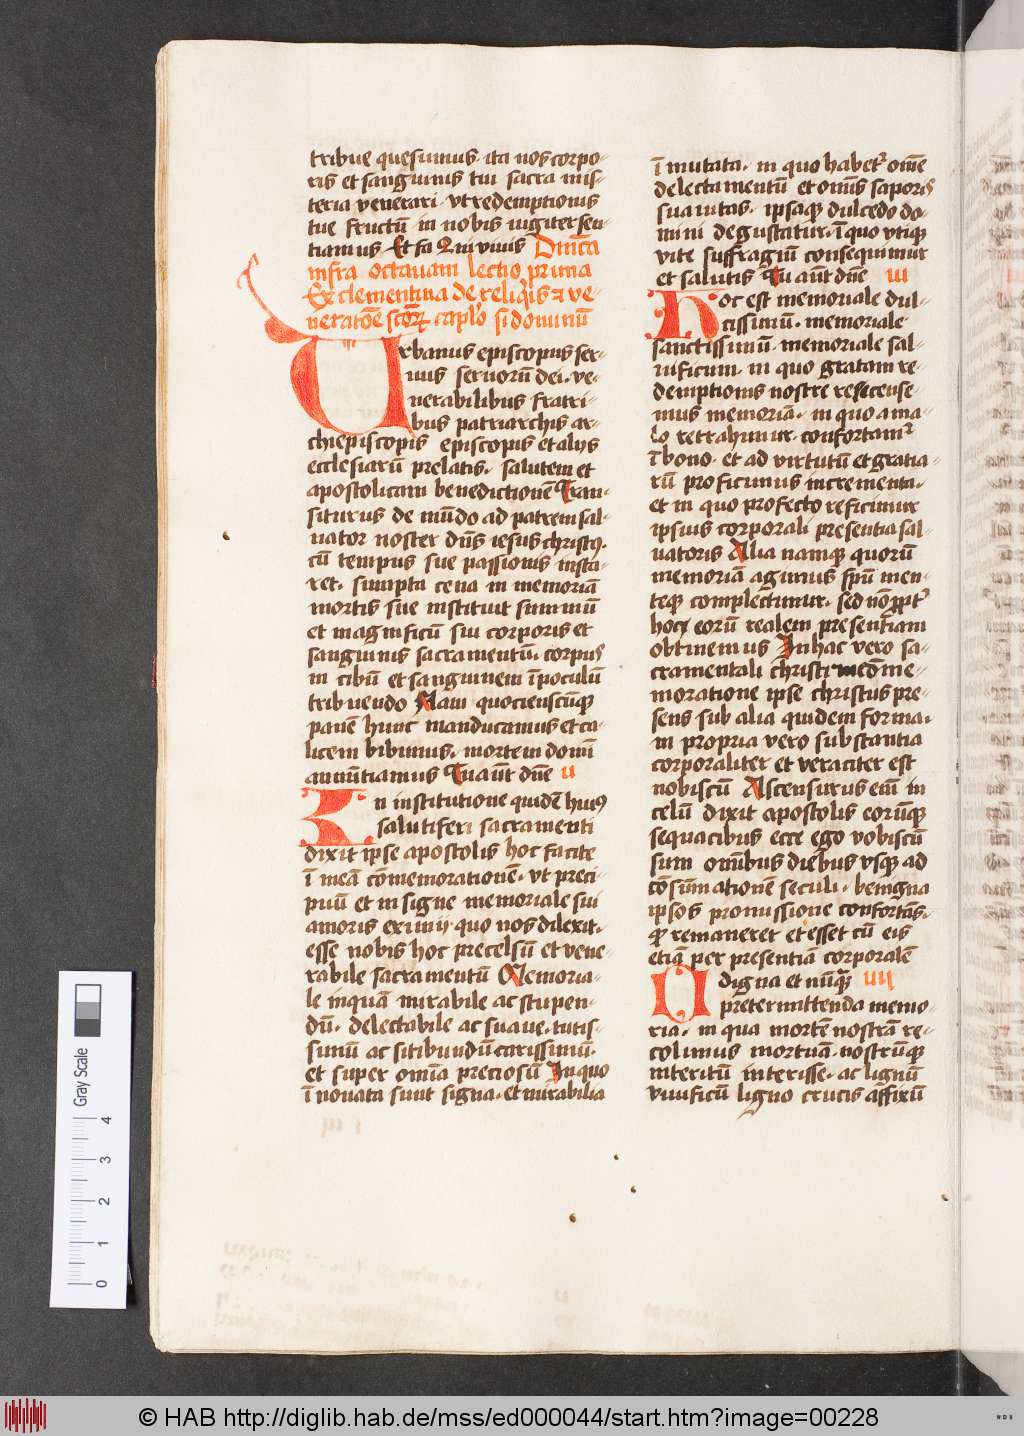 tribue quesumus. ita nos corpo-
ris et sanguinis tui sacra mis-
teria venerari. vt redemptionis
tue fructū in nobis iugiter sen-
tiamus Et fa Qui viuis Dn̄ica
infra octauam lectio prima
Ex clementina de reliq̇is ⁊ ve-
neratōe sc̄oꝝ caplo si dominū
Urbanus episcopus ser-
uus seruorū dei. ve-
nerabilibus fratri-
bus patriarchis ar-
chiepiscopis episcopis et alijs
ecclesiarū prelatis. salutem et
apostolicam benedictionē Tran-
siturus de mūdo ad patrem sal-
uator noster dn̄s iesus christꝰ.
cū tempus sue passionis insta-
ret. sumpta cena in memoriā
mortis sue instituit summū
et magnificū sui corporis et
sanguinis sacramentū. corpus
in cibū et sanguinem ī poculū
tribuendo Nam quociēscūqꝫ
panē hunc manducamus et ca-
licem bibimus. mortem domī
anūntiamus Tu aūt dn̄e ii
In institutione quidē huiꝰ
salutiferi sacramenti
dixit ipse apostolis hoc facite
ī meā cōmemorationē. vt preci-
puū et insigne memoriale sui
amoris eximij. quo nos dilexit.
esse nobis hoc precelsū et vene-
rabile sacramentū Memoria-
le inquā mirabile ac stupen-
dū. delectabile ac suaue. tutis-
simū ac sitibundū carissimū.
et super omīa preciosū In quo
īnouata sunt signa. et mirabilia
īmutata. in quo habetʳ om̄e
delectamentū et om̄is saporis
suauitas. ipsaqꝫ dulcedo do-
mini degustatur. ī quo vtiqꝫ
vite suffragiū consequimur
et salutis Tu aūt dn̄e iii
Hoc est memoriale dul-
cissimū. memoriale
sanctissimū. memoriale sal-
uificum. in quo gratam re-
demptionis nostre recense-
mus memoriā. in quo a ma-
lo retrahimur. confortamʳ
ī bono. et ad virtutū et gratia-
rū proficimus incrementa.
et in quo profecto reficimur
ipsius corporali presentia sal-
uatoris Alia namqꝫ quorū
memoriā agimus spū men-
teqꝫ complectimur. sed nō ꝓptʳ
hoc eorū realem presentiam
obtinemus In hac vero sa-
cramentali christi me-
moratione ipse christus pre-
sens sub alia quidem forma.
in propria vero substantia
corporaliter et veraciter est
nobiscū Ascensurus em̄ in
celū dixit apostolis eorūqꝫ
sequacibus ecce ego vobiscū
sum omībus diebus vsqꝫ ad
cōsūmationē seculi. benigna
ipsos promissione confortās.
qꝫ remaneret et esset cū eis
etiā per presentiā corporalē
O digna et nūqꝫ iiij
pretermittenda memo-
ria. in qua mortē nostrā re-
colimus mortuā. nostrūqꝫ
interitū interisse. ac lignū
viuificū ligno crucis affixū
Gray Scale
0 1 2 3 4
© HAB http://diglib.hab.de/mss/ed000044/start.htm?image=00228